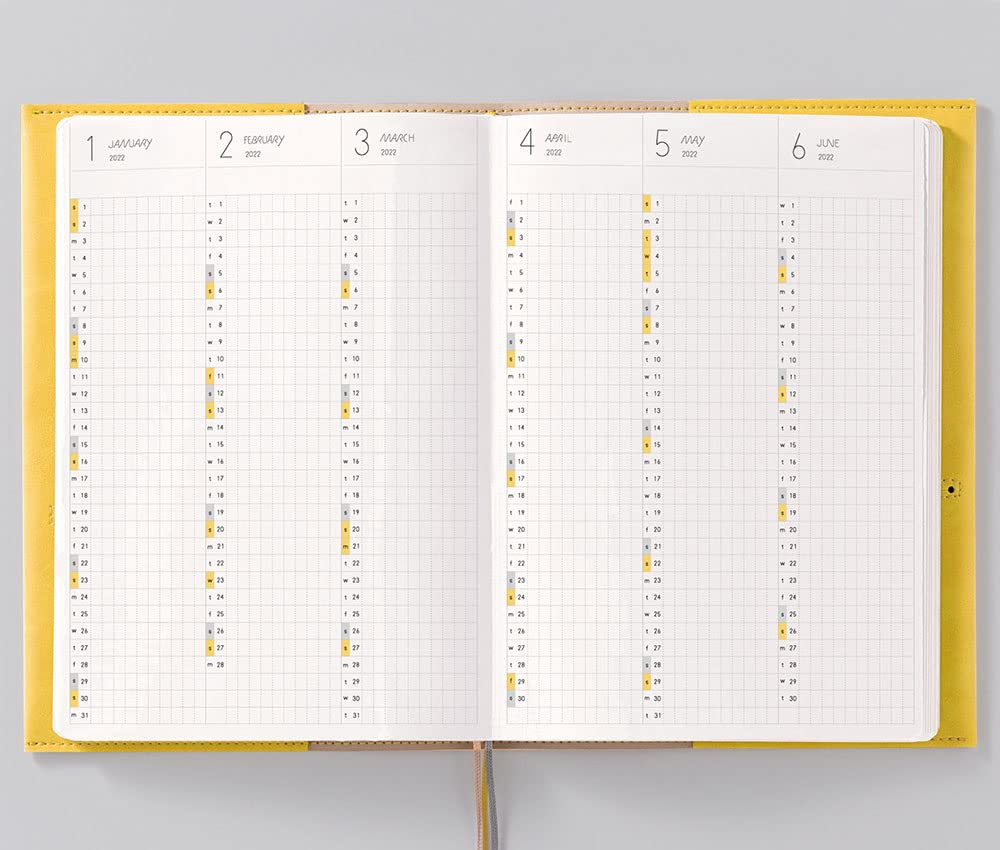 1 JANUARY
2022
s 1
s 2
m 3
t 4
w 5
t 6
f 7
s 8
s 9
m 10
t 11
w 12
t 13
f 14
s 15
s 16
m 17
t 18
w 19
t 20
f 21
s 22
s 23
m 24
t 25
w 26
t 27
f 28
s 29
s 30
m 31
2 FEBRUARY
2022
t 1
w 2
t 3
f 4
s 5
s 6
m 7
t 8
w 9
t 10
f 11
s 12
s 13
m 14
t 15
w 16
t 17
f 18
s 19
s 20
m 21
t 22
w 23
t 24
f 25
s 26
s 27
m 28
3 MARCH
2022
t 1
w 2
t 3
f 4
s 5
s 6
m 7
t 8
w 9
t 10
f 11
s 12
s 13
m 14
t 15
w 16
t 17
f 18
s 19
s 20
m 21
t 22
w 23
t 24
f 25
s 26
s 27
m 28
t 29
w 30
t 31
4 APRIL
2022
f 1
s 2
s 3
m 4
t 5
w 6
t 7
f 8
s 9
s 10
m 11
t 12
w 13
t 14
f 15
s 16
s 17
m 18
t 19
w 20
t 21
f 22
s 23
s 24
m 25
t 26
w 27
t 28
f 29
s 30
5 MAY
2022
s 1
m 2
t 3
w 4
t 5
f 6
s 7
s 8
m 9
t 10
w 11
t 12
f 13
s 14
s 15
m 16
t 17
w 18
t 19
f 20
s 21
s 22
m 23
t 24
w 25
t 26
f 27
s 28
s 29
m 30
t 31
6 JUNE
2022
w 1
t 2
f 3
s 4
s 5
m 6
t 7
w 8
t 9
f 10
s 11
s 12
m 13
t 14
w 15
t 16
f 17
s 18
s 19
m 20
t 21
w 22
t 23
f 24
s 25
s 26
m 27
t 28
w 29
t 30